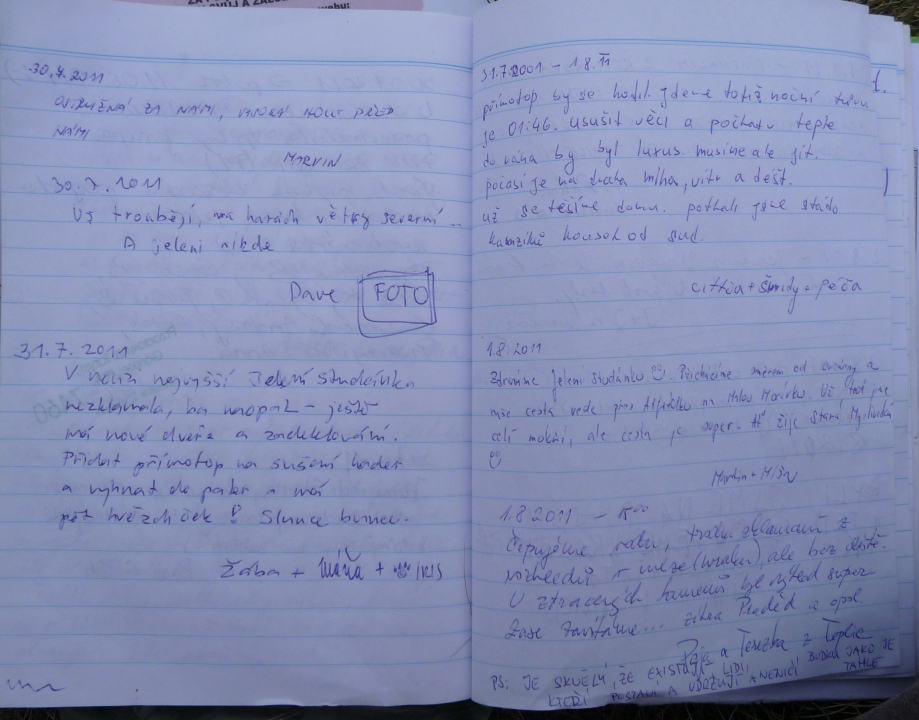 30.7.2011
ZA NÁMI, HOLE PŘED
NÁMI
MARVIN
30.7.2011
Už troubějí, na horách větry severní...
A jeleni nikde
Dave FOTO
31.7.2011
nejvyšší Jelení Studánka
nezklamala, ba naopak – ještě
má nové dveře a zadeklování.
Přidat přímotop na sušení hader
a vyhnat de a má
pět hvězdiček! Slunce
Žába + Máňa + IRIS
31.7.2001 – 1.8.11
přímotop by se hodil, jdeme totiž noční túru
je 01:46. usušit věci a počkat v teple
do rána by byl luxus. musíme ale jít.
počasí je na draka mlha, vítr a déšť.
už se těšíme domu. potkali jsme stádo
kamzíků kousek od sud.
citkia + Šmidy + Peča
1.
1.8.2011
Zdravíme Jelení studánku. Přicházíme směrem od a
naše cesta vede přes Alfrédku na Malou Morávku. Už teď jsme
celí mokří, ale cesta je super. Ať žije Stará Myslivna
Martin + Míša
1.8.2011 – 15⁰⁰
Čepujeme vodu, trochu zklamaní z
rozhledů v mlze (mraku), ale bez deště.
U ztracených kamenů byl výhled super.
Zase zavítáme... zítra Praděd a opět
Pája a Terezka z Teplic
PS: JE SKVĚLÝ, ŽE EXISTUJÍ LIDI,
KTEŘÍ POSTAVÍ A UDRŽUJÍ A NENIČÍ BUDKU JAKO JE
TAHLE